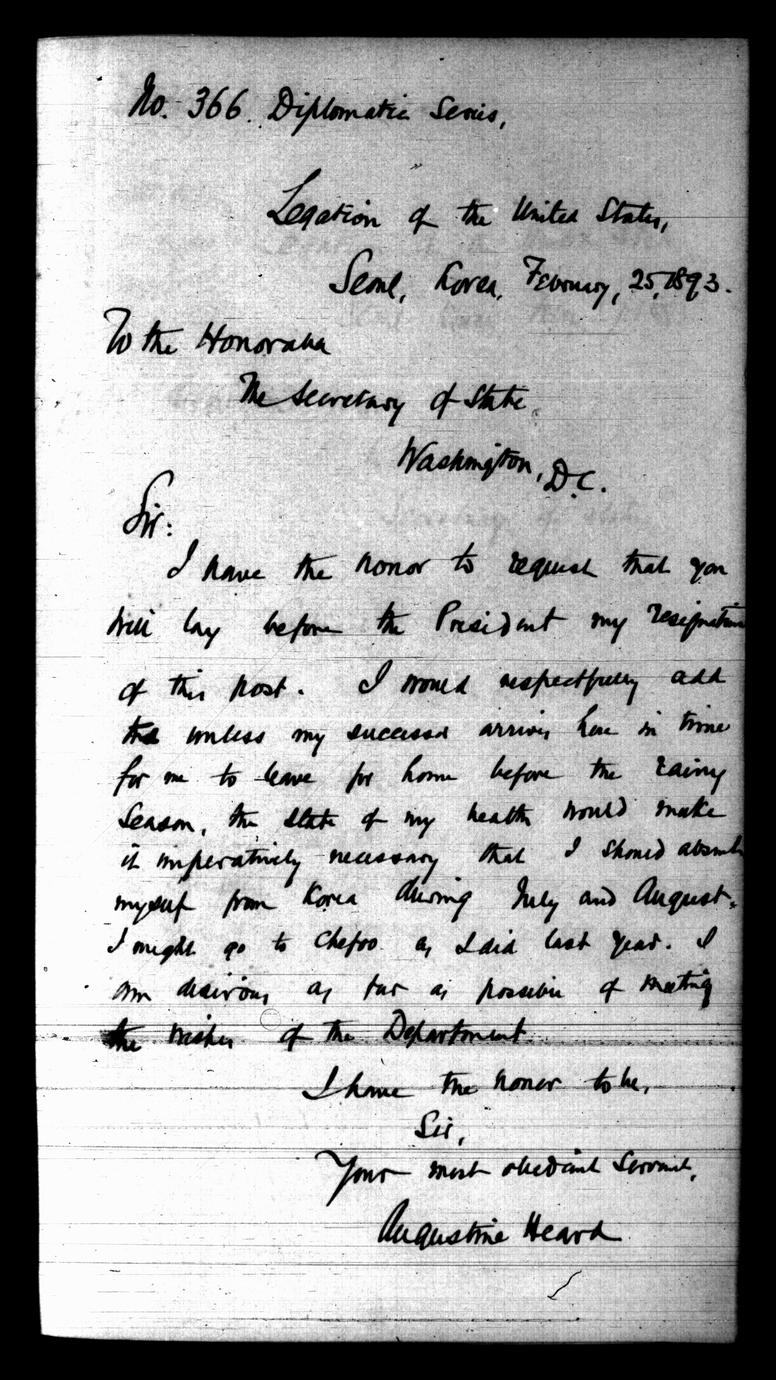 No. 366. Diplomatic Series,
Legation of the United States,
Seoul, Korea, February, 25, 1893.
To the Honorable
The Secretary of State
Washington, D.C.
Sir:
I have the honor to request that you
will lay before the President my resignation
of this post. I would respectfully add
that unless my successor arrives here in time
for me to leave for home before the rainy
Season, the state of my health would make
it imperatively necessary that I should absent
myself from Korea during July and August.
I might go to Chefoo as I did last year. I
am desirous as far as possible of meeting
the wishes of the Department.
I have the honor to be,
Sir,
Your most obedient Servant,
Augustine Heard